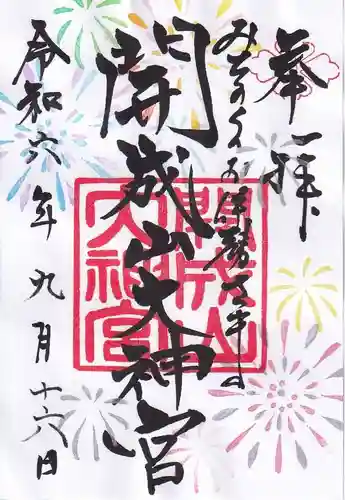 奉拝
みちのくのお伊勢さま
開成山大神宮
開成山大神宮
令和六年九月十六日